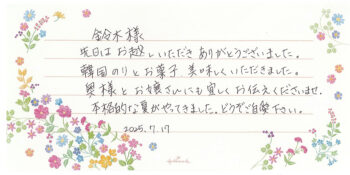 鈴木様
先日はお越しいただきありがとうございました。
韓国のりとお菓子美味しくいただきました。
奥様とお嬢さんにも宜しくお伝えくださいませ。
本格的な夏がやってきました。どうぞご自愛下さい。
2025.7.17